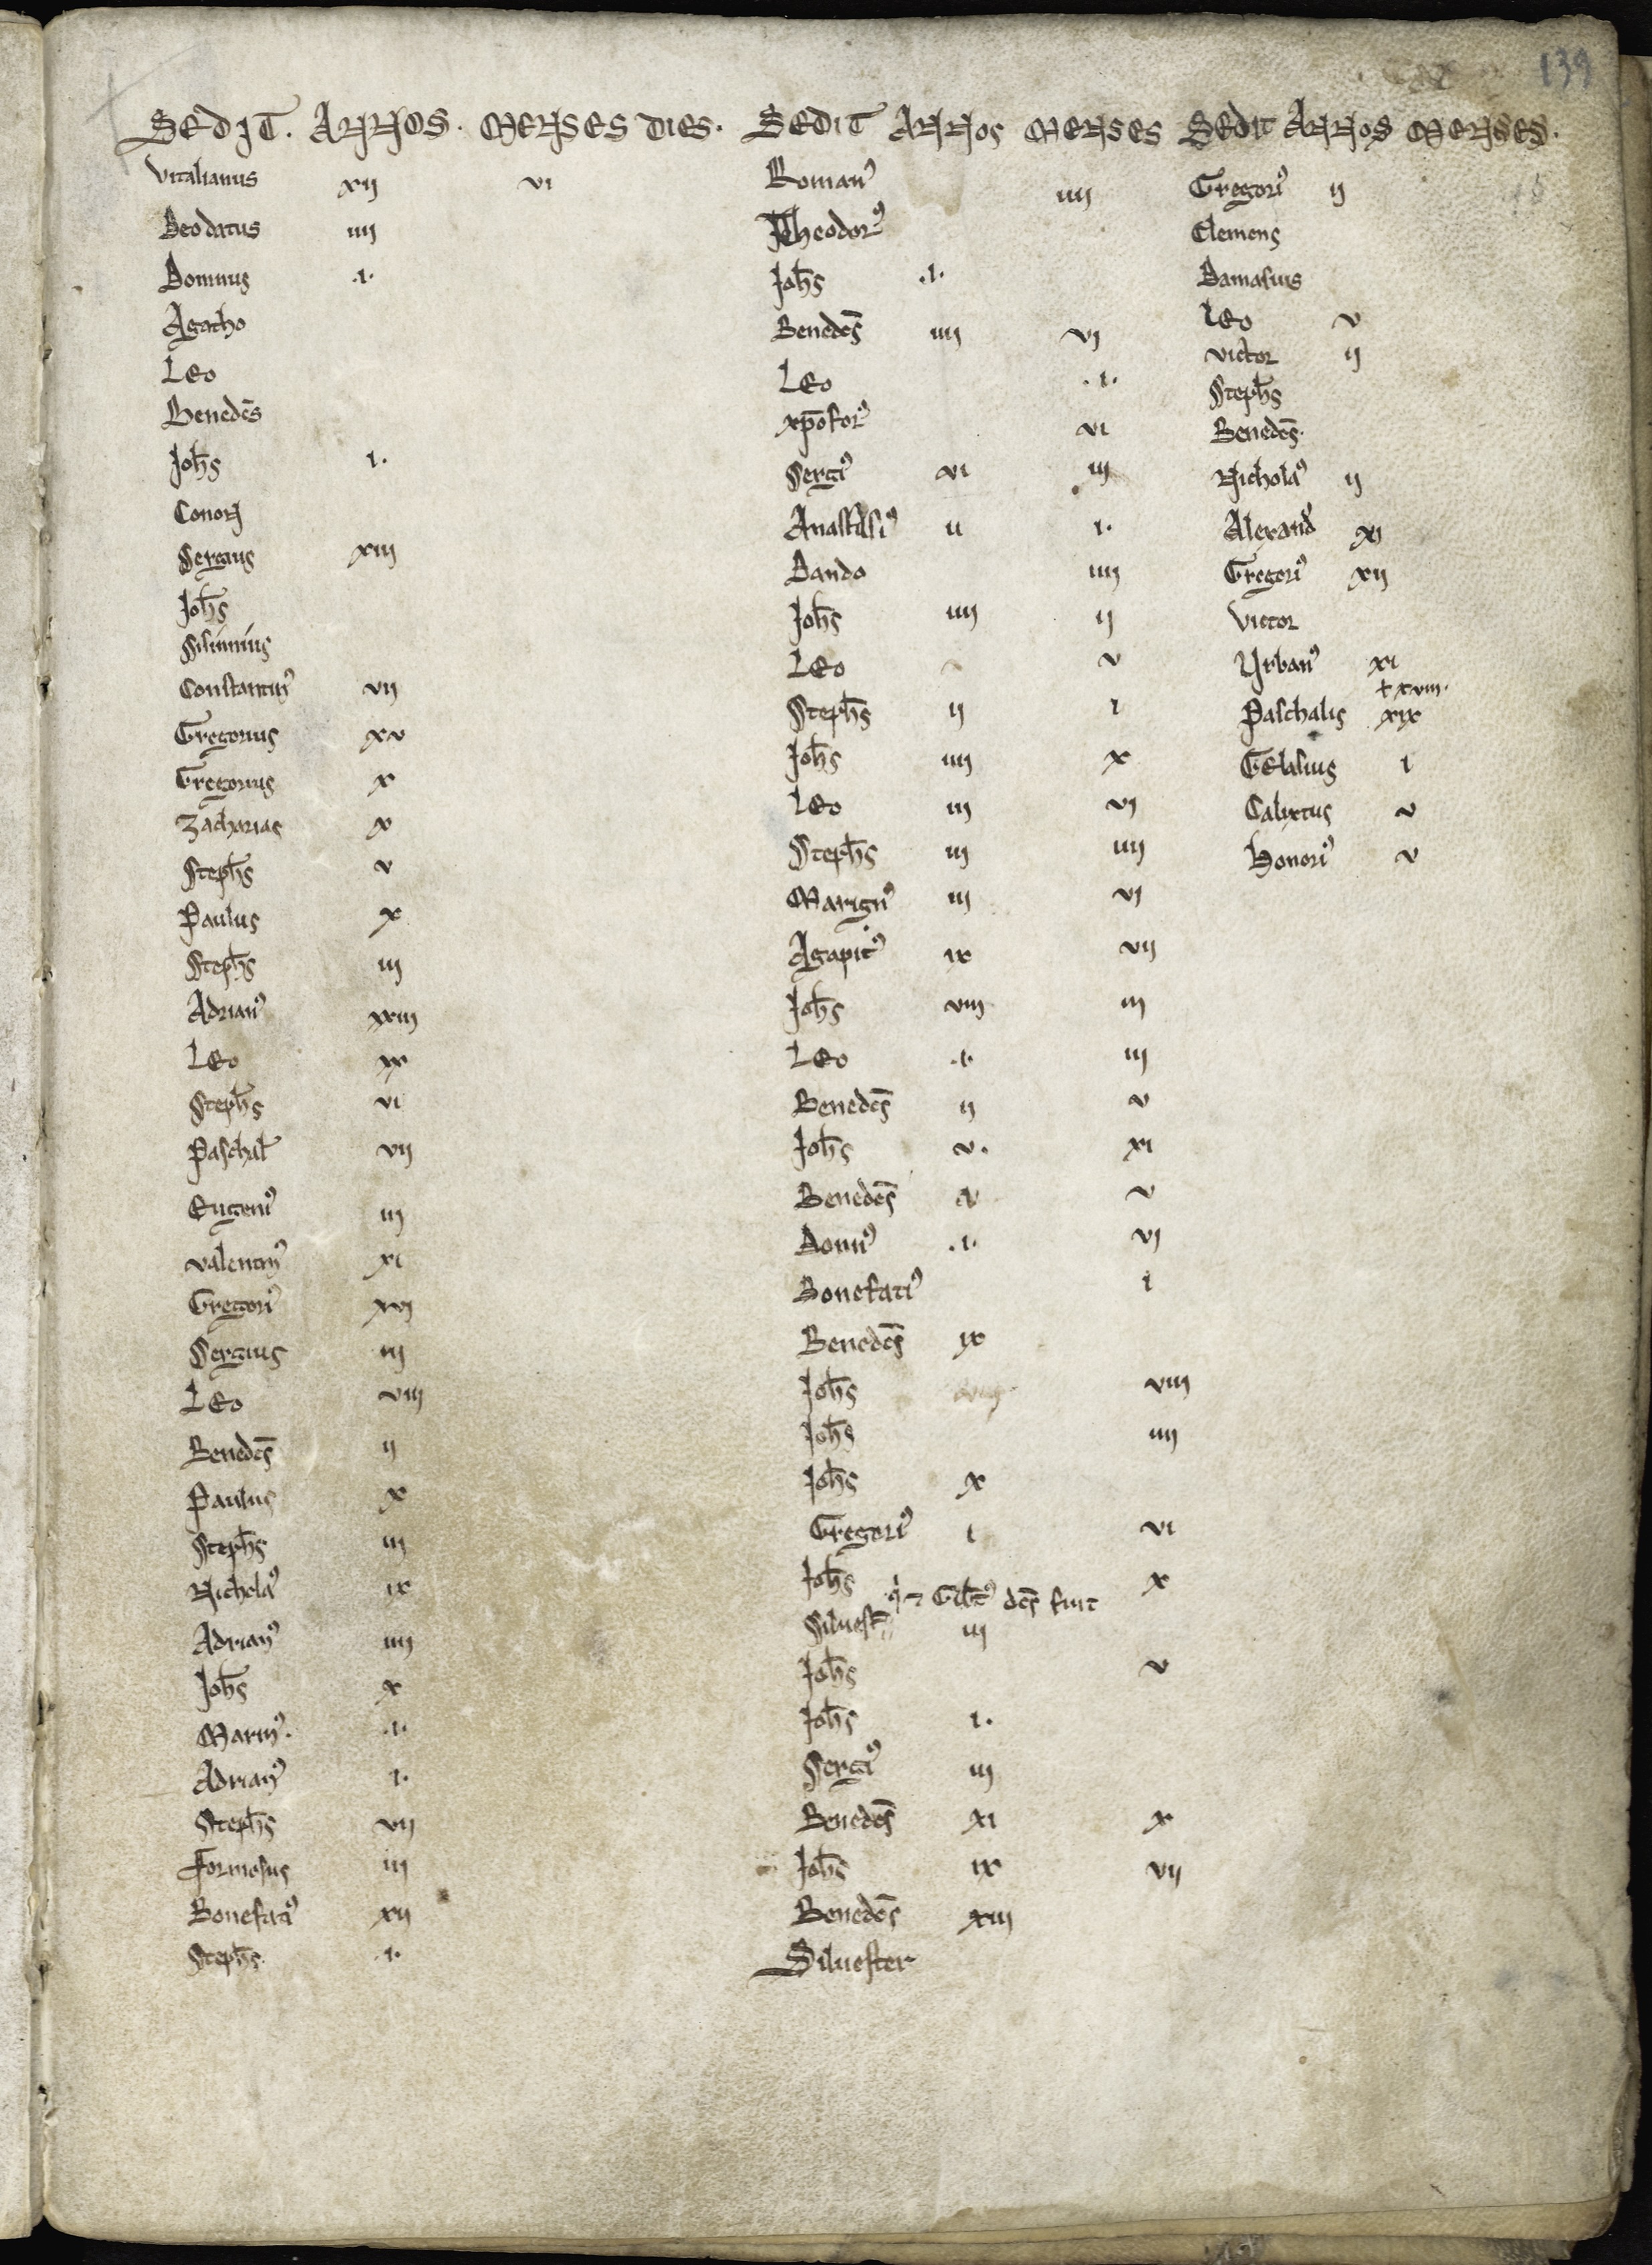 139
SEDIT. ANNOS. MENSES DIES.
Vitalianus xij vi
Deodatus iiij
Domnus .i.
Agatho
Leo
Benedcs̄
Joh̄s i.
Conon
Sergius xiij
Joh̄s
Sisinnius
Constantinꝰ vij
Gregorius xv
Gregorius x
Zacharias x
Steph̄s v
Paulus x
Steph̄s iij
Adrianꝰ xxiij
Leo xx
Steph̄s vi
Paschal̄ vij
Eugeniꝰ iij
Valentinꝰ xi
Gregoriꝰ xvj
Sergius iij
Leo viij
Benedcs̄ ij
Paulus x
Steph̄s iij
Nicholaꝰ ix
Adrianꝰ iiij
Joh̄s x
Marinꝰ. .i.
Adrianꝰ i.
Steph̄s vij
Formosus iij
Bonefatiꝰ xij
Steph̄s. .i.
SEDIT ANNOS MENSES
Romanꝰ iiij
Theodorꝰ
Joh̄s .i.
Benedcs̄ iiij vj
Leo .i.
xp̄oforꝰ vi
Sergiꝰ vi iij
Anastasiꝰ ii i.
Dando iiij
Joh̄s iiij ij
Leo v
Steph̄s ij i
Joh̄s iiij x
Leo iij vj
Steph̄s iij iiij
Marignꝰ iij vj
Agapitꝰ ix vij
Joh̄s viij iij
Leo .i. iij
Benedcs̄ ij v
Joh̄s v. xi
Benedcs̄ v
Domnꝰ .i. vj
Bonefatiꝰ i
Benedcs̄ ix
Joh̄s viij
Joh̄s iiij
Joh̄s x
Gregoriꝰ i vi
Joh̄s x
q̇ ⁊ Gib̄tꝰ dcs̄ fuit
Siluest iij
Joh̄s v
Joh̄s i.
Sergiꝰ iij
Benedcs̄ xi x
Joh̄s ix vij
Benedcs̄ xiij
Siluester
SEDIT ANNOS MENSES.
Gregoriꝰ ij
Clemens
Damasius
Leo v
Victor ij
Steph̄s
Benedcs̄.
Nicholaꝰ ij
Alexand xj
Gregoriꝰ xij
Victor
Urbanꝰ xi
ł xviij.
Paschalis xix
Gelasius i
Calixtus v
Honoriꝰ v